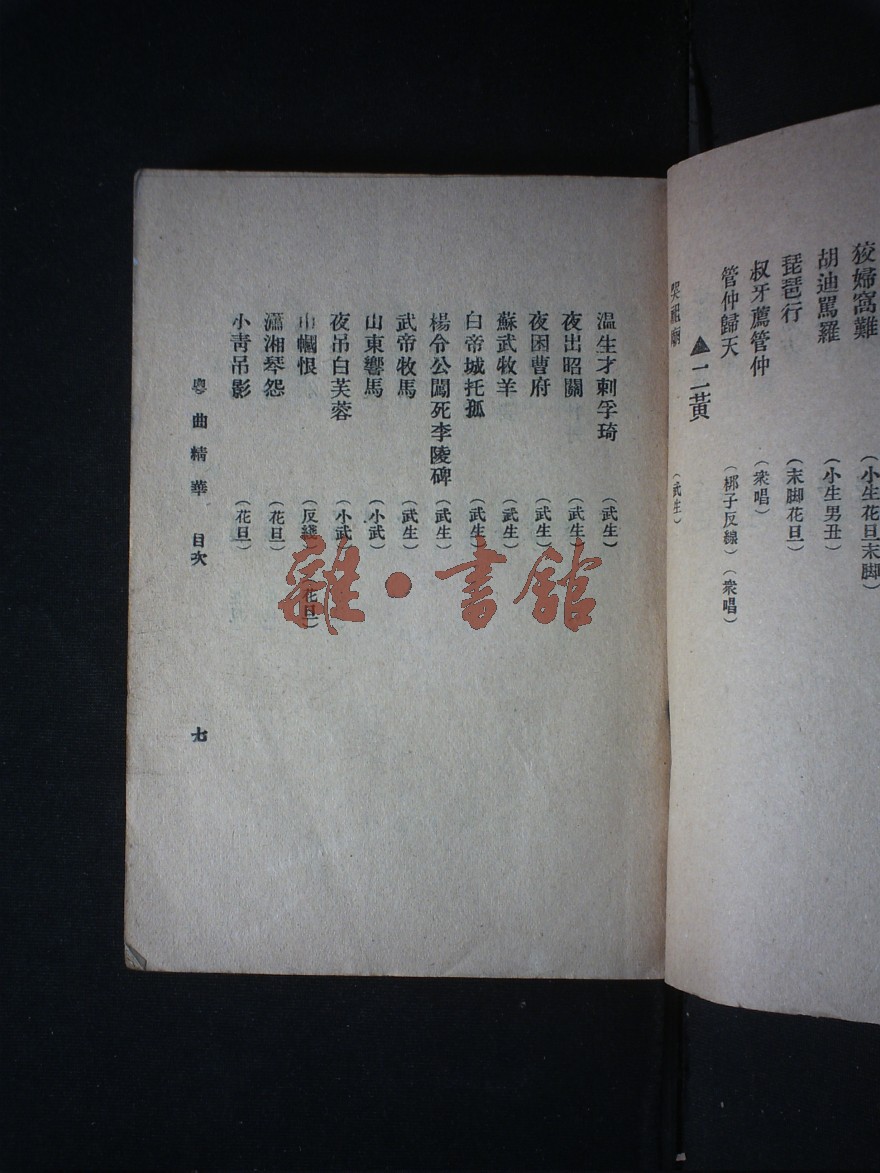 狡婦窩難 (小生花旦末脚)
胡迪罵羅 (小生男丑)
琵琶行 (末脚花旦)
叔牙薦管仲 (衆唱)
管仲歸天 (梆子反線) (衆唱)
▲二黃
哭祖廟 (武生)
温生才刺孚琦 (武生)
夜出昭關 (武生)
夜困曹府 (武生)
蘇武牧羊 (武生)
白帝城托孤 (武生)
楊令公闖死李陵碑 (武生)
武帝牧馬 (武生)
山東響馬 (小武)
夜吊白芙蓉 (小武)
巾幗恨 (反綫) (花旦)
瀟湘琴怨 (花旦)
小靑吊影 (花旦)
粵曲精華 目次 七
雜·書館